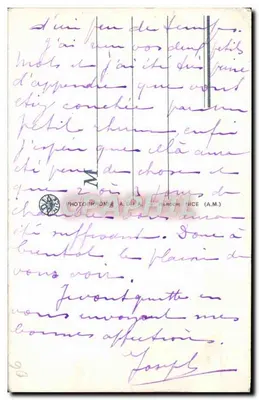 d'un peu de temps.
J'ai reçu vos deux petits
mots et j'ai été
d'apprendre que vous
étiez couchée par un
petit rhume, enfin
j'espère que cela aura
été peu de chose et
que 2 ou 3 jours de
chambre vous auront
été suffisant. Donc à
bientôt le plaisir de
vous voir.
Je vous quitte en
vous envoyant mes
bonnes affections.
Joseph